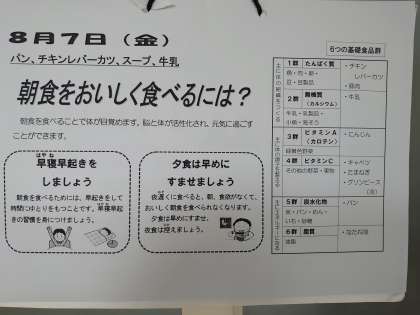 8月7日（金）
パン、チキンレバーカツ、スープ、牛乳
朝食をおいしく食べるには？
朝食を食べることで体が目覚めます。脳と体が活性化され、元気に過ごす
ことができます。
はや ね
早寝早起きを
しましょう
朝食を食べるためには、早起きをして
時間にゆとりをもつことです。早寝早起
きの習慣を身につけましょう。
夕食は早めに
すませましょう
夜遅くに食べると、朝、食欲がなくて、
おいしく朝食を食べられなくなります。
夕食は早めにすませ、
夜食は控えましょう。
6つの基礎食品群
1群 たんぱく質
・チキン
レバーカツ
・豚肉
2群 無機質
（カルシウム）
牛乳・乳製品・
小魚・海そう
・牛乳
3群 ビタミンA
（カロテン）
緑黄色野菜
・にんじん
4群 ビタミンC
その他の野菜・果物
・キャベツ
・たまねぎ
・グリンピース
5群 炭水化物
米・パン・めん・
いも・砂糖
・パン
6群 脂質
油脂